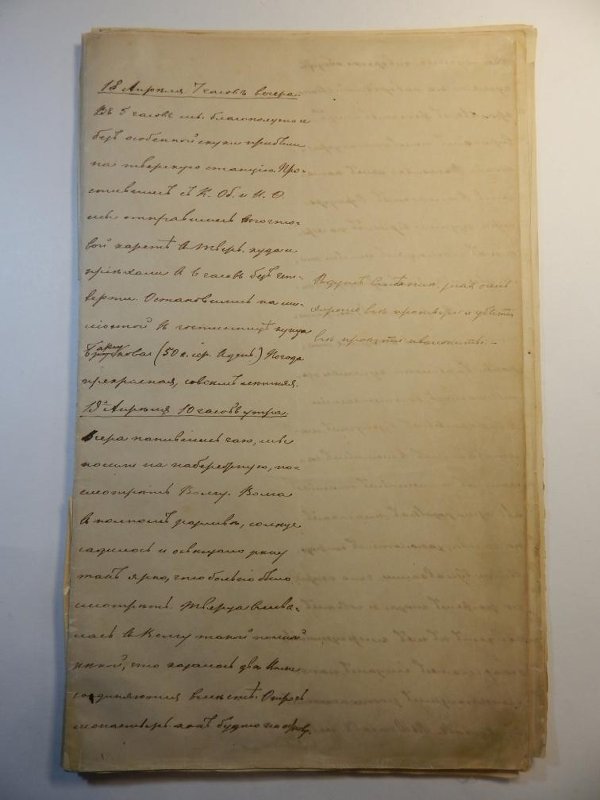 18 Апрѣля 7 часовъ вечера.
Въ 5 часовъ мы благополучно и
безъ особенной скуки прибыли
на тверскую станцію. Про-
стившись съ К. Об. и Н. О
мы отправились въ почто-
вой каретѣ въ Тверь, куда и
пріѣхали въ 6 часовъ безъ чет-
верти. Остановились на
въ гостинницѣ купца
(50 к. сер. въ день) Погода
прекрасная, совсѣмъ лѣтняя.
19 Апрѣля 10 часовъ утра
Вчера напившись чаю, мы
пошли на набережную, по-
смотрѣть Волгу. Волга
въ полномъ разливѣ, солнце
садилось и освѣщало рѣку
такъ ярко, что больно было
смотрѣть. Тверца влива-
лась въ Волгу такой
рѣкой, что казалось двѣ Волги
соединяются вмѣстѣ. Отрочь
монастырь какъ будто на